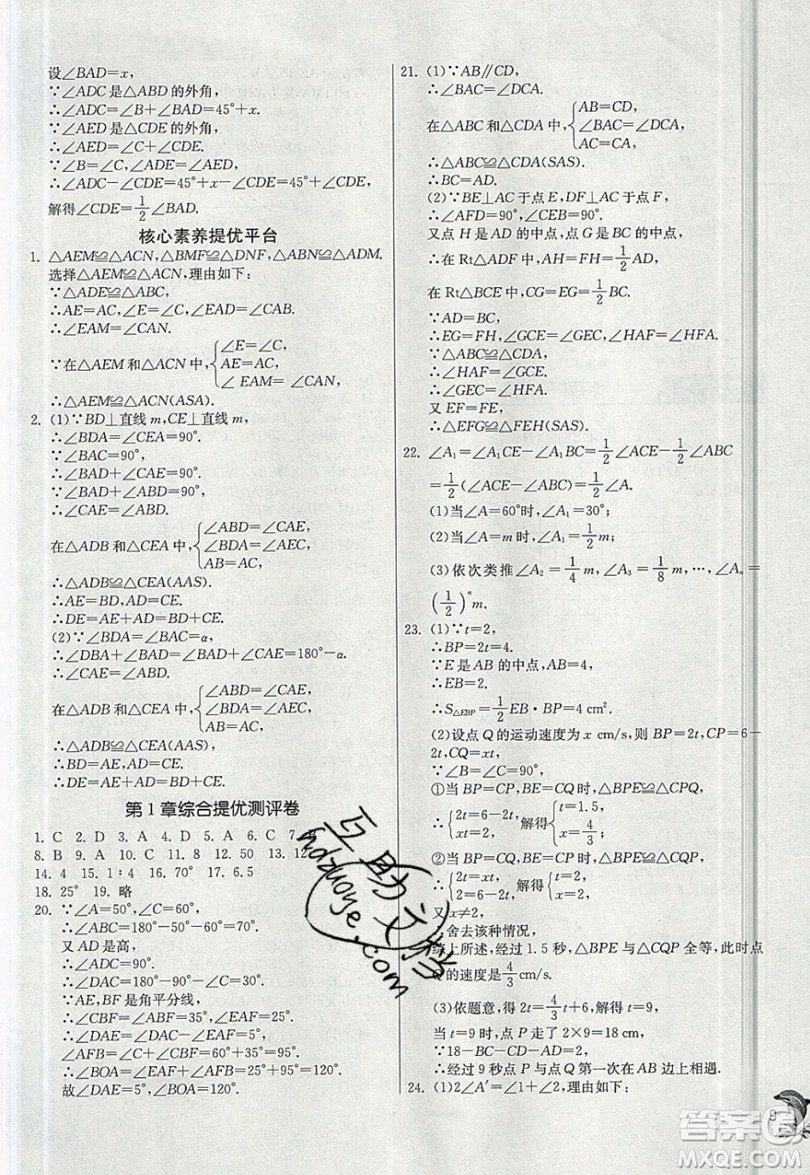 设∠BAD=x,
∵∠ADC是△ABD的外角,
∴∠ADC=∠B+∠BAD=45°+x.
∵∠AED是△CDE的外角,
∴∠AED=∠C+∠CDE.
∵∠B=∠C,∠ADE=∠AED,
∴∠ADC-∠CDE=45°+x-∠CDE=45°+∠CDE,
解得∠CDE=1/2∠BAD.
核心素养提优平台
1. △AEM≌△ACN,△BMF≌△DNF,△ABN≌△ADM.
选择△AEM≌△ACN,理由如下:
∵△ADE≌△ABC,
∴AE=AC,∠E=∠C,∠EAD=∠CAB.
∴∠EAM=∠CAN.
∵在△AEM和△ACN中,{∠E=∠C, AE=AC, ∠EAM=∠CAN,
∴△AEM≌△ACN(ASA).
2. (1)∵BD⊥直线m,CE⊥直线m,
∴∠BDA=∠CEA=90°.
∵∠BAC=90°,
∴∠BAD+∠CAE=90°.
∵∠BAD+∠ABD=90°,
∴∠CAE=∠ABD.
在△ADB和△CEA中,{∠ABD=∠CAE, ∠BDA=∠AEC, AB=AC,
∴△ADB≌△CEA(AAS).
∴AE=BD,AD=CE.
∴DE=AE+AD=BD+CE.
(2)∵∠BDA=∠BAC=α,
∴∠DBA+∠BAD=∠BAD+∠CAE=180°-α.
∴∠CAE=∠ABD.
在△ADB和△CEA中,{∠ABD=∠CAE, ∠BDA=∠AEC, AB=AC,
∴△ADB≌△CEA(AAS).
∴AE=BD,AD=CE.
∴DE=AE+AD=BD+CE.
第1章综合提优测评卷
1. C 2. D 3. A 4. D 5. A 6. C 7.
8. B 9. A 10. C 11. 8 12. 50 13. 12
14. 4 15. 1∶4 16. 70° 17. 6.5
18. 25° 19. 略
20. ∵∠A=50°,∠C=60°,
∴∠ABC=180°-50°-60°=70°.
又AD是高,
∴∠ADC=90°.
∴∠DAC=180°-90°-∠C=30°.
∵AE,BF是角平分线,
∴∠CBF=∠ABF=35°,∠EAF=25°.
∴∠DAE=∠DAC-∠EAF=5°,
∠AFB=∠C+∠CBF=60°+35°=95°.
∴∠BOA=∠EAF+∠AFB=25°+95°=120°.
故∠DAE=5°,∠BOA=120°.
21. (1)∵AB∥CD,
∴∠BAC=∠DCA.
在△ABC和△CDA中,{AB=CD, ∠BAC=∠DCA, AC=CA,
∴△ABC≌△CDA(SAS).
∴BC=AD.
(2)∵BE⊥AC于点E,DF⊥AC于点F,
∴∠AFD=90°,∠CEB=90°.
又点H是AD的中点,点G是BC的中点,
在Rt△AFD中,AH=FH=1/2AD,
在Rt△BCE中,CG=EG=1/2BC.
∵AD=BC,
∴EG=FH,∠GCE=∠GEC,∠HAF=∠HFA.
∵△ABC≌△CDA,
∴∠GCE=∠HAF.
∴∠GEC=∠HFA.
又EF=FE,
∴△EFG≌△FEH(SAS).
22. ∠A₁=∠A₁CE-∠A₁BC=1/2∠ACE-1/2∠ABC
=1/2(∠ACE-∠ABC)=1/2∠A.
(1)当∠A=60°时,∠A₁=30°;
(2)当∠A=m时,∠A₁=1/2m;
(3)依次类推∠A₂=1/4m,∠A₃=1/8m,…,∠Aₙ=
(1/2)ⁿm.
23. (1)∵t=2,
∴BP=2t=4.
∵E是AB的中点,
∴EB=2.
∴S△EBP=1/2EB·BP=4 cm².
(2)设点Q的运动速度为x cm/s,则BP=2t,CP=6-
2t,CQ=xt.
①当BP=CP,BE=CQ时,△BPE≌△CPQ,
∴{2t=6-2t, 2=xt, 解得{t=1.5, x=4/3;
②当BP=CQ,BE=CP时,△BPE≌△CQP,
∴{2t=xt, 2=6-2t, 解得{t=2, x=2.
又x≠2,
∴舍去该种情况,
综上所述,经过1.5秒,△BPE与△CQP全等,此时点
Q的速度是4/3cm/s.
(3)依题意,得2t=4/3t+6,解得t=9,
当t=9时,点P走了2×9=18 cm,
∵18-BC-CD-AD=2,
∴经过9秒后点P与点Q第一次在AB边上相遇.
24. (1)2∠A'=∠1+∠2,理由如下:
9
互助文档
hdzuoye.com
答案圈
MXQE.COM